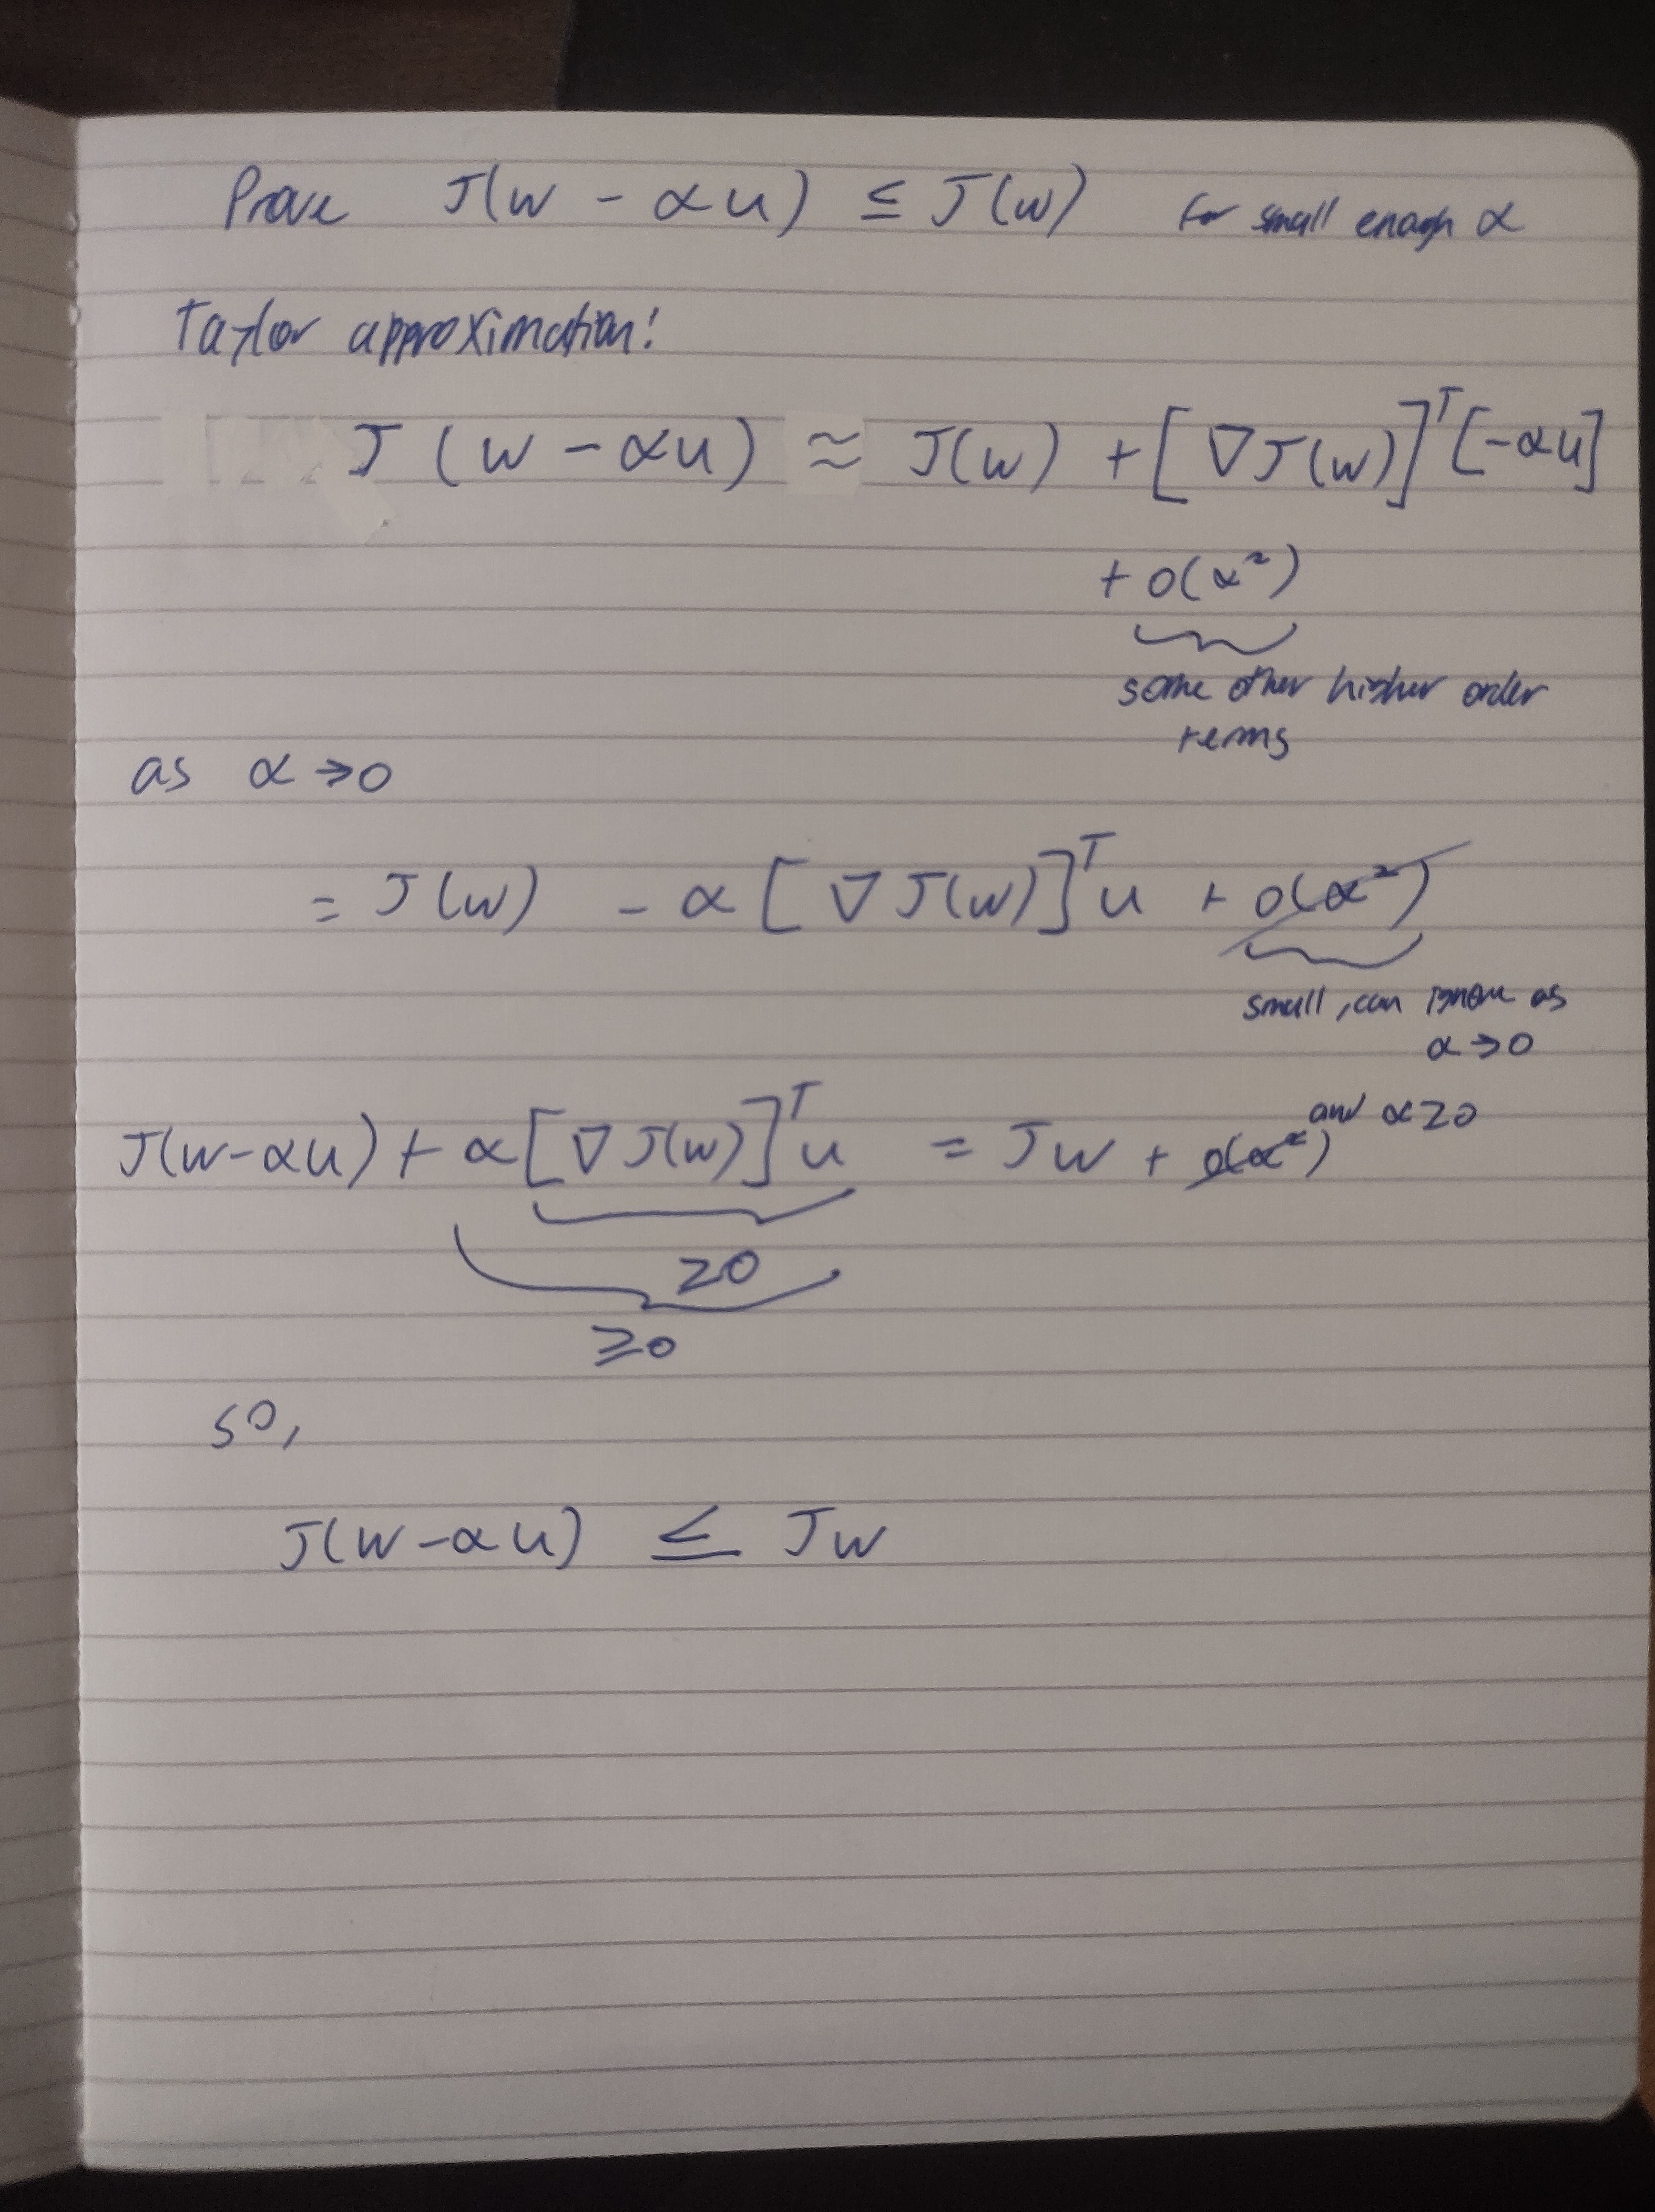 Prove J(w - αu) ≤ J(w) for small enough α
Taylor approximation!
J (w - αu) ≈ J(w) + [∇J(w)]ᵀ[-αu]
+ O(α²)
some other higher order
terms
as α → 0
= J(w) - α[∇J(w)]ᵀu + O(α²)
small, can ignore as
α → 0
and α ≥ 0
J(w-αu) + α[∇J(w)]ᵀu = Jw + O(α²)
≥0
≥0
so,
J(w-αu) ≤ Jw